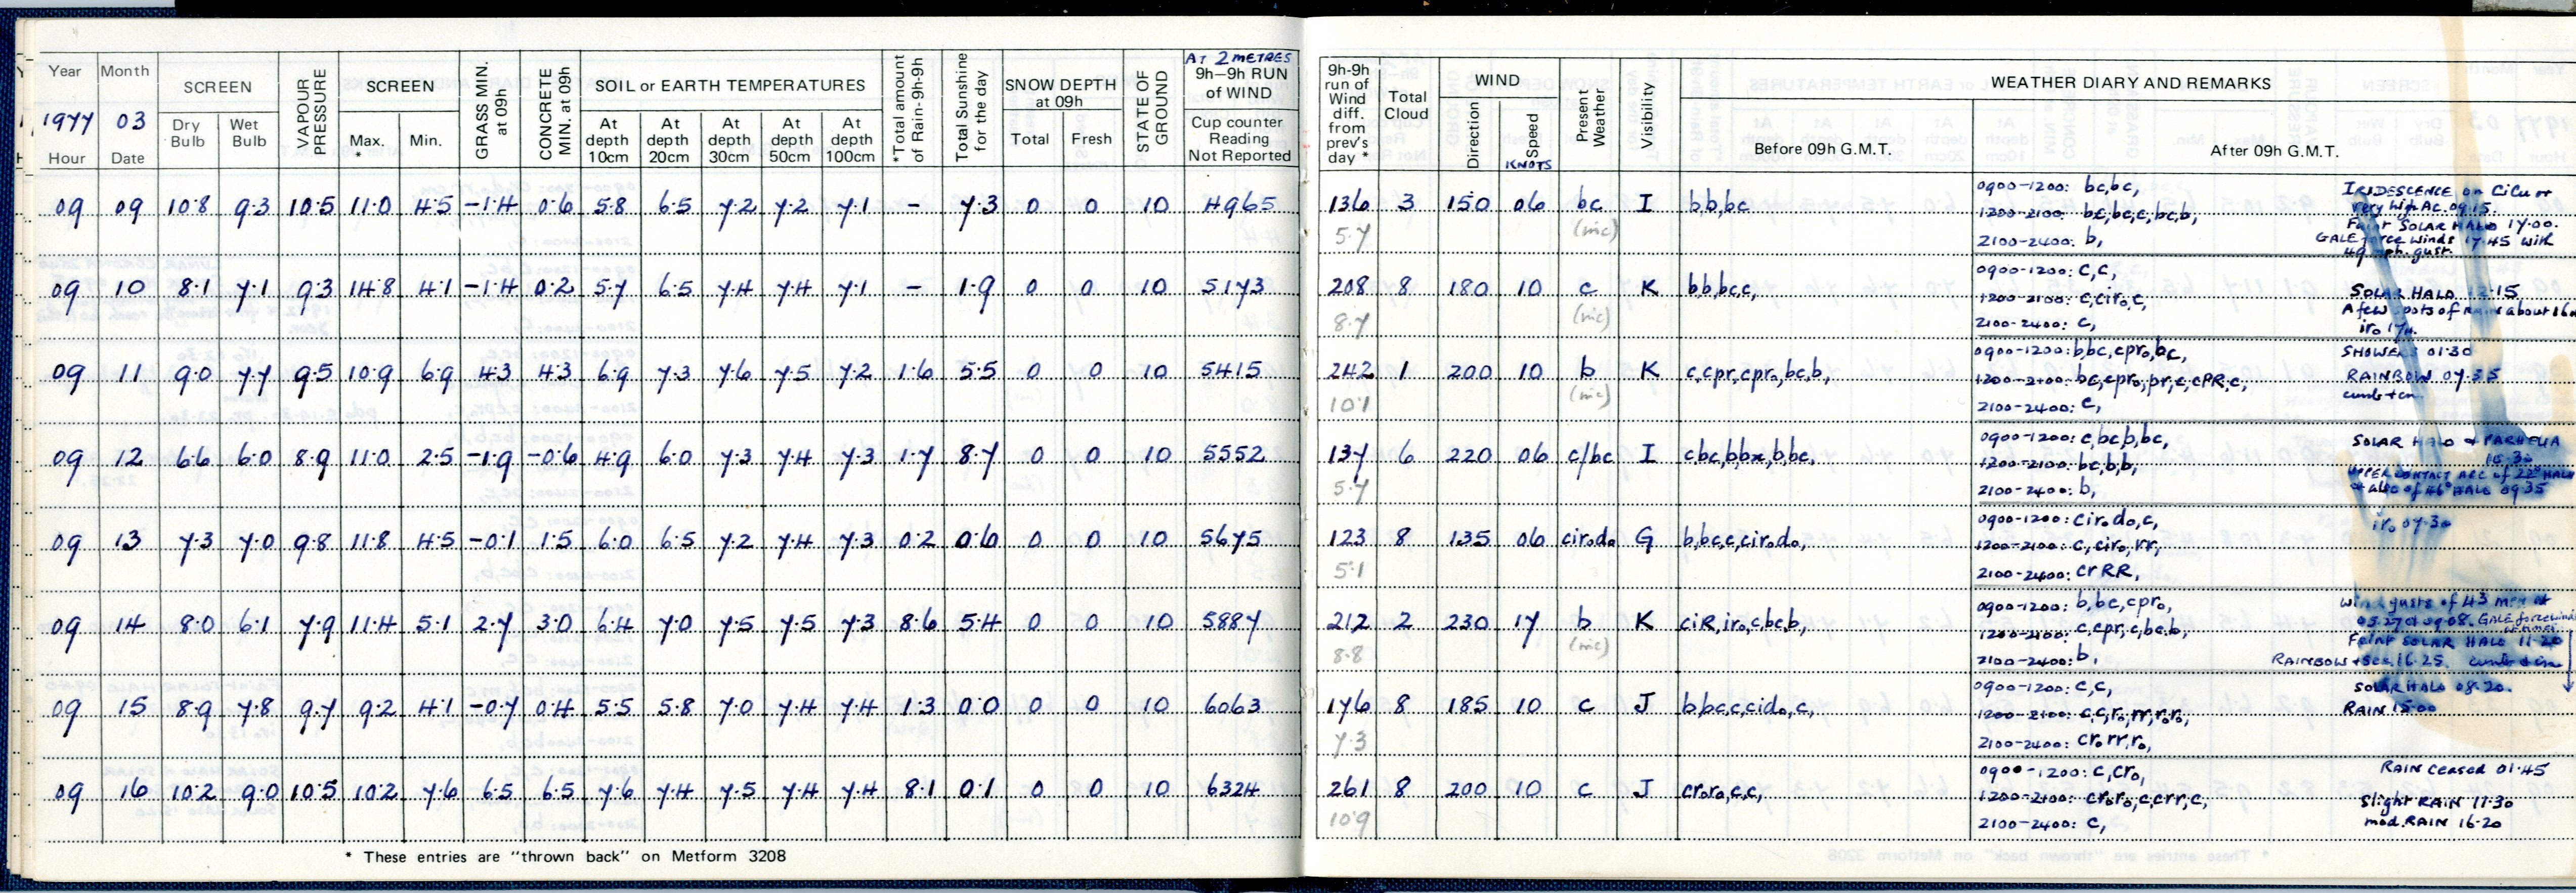 Year Month SCREEN VAPOUR PRESSURE SCREEN GRASS MIN. at 09h CONCRETE MIN. at 09h SOIL or EARTH TEMPERATURES *Total amount of Rain-9h-9h Total Sunshine for the day SNOW DEPTH at 09h STATE OF GROUND AT 2 METRES 9h—9h RUN of WIND
1977 03 Dry Bulb Wet Bulb Max. * Min. At depth 10cm At depth 20cm At depth 30cm At depth 50cm At depth 100cm Total Fresh Cup counter Reading Not Reported
Hour Date
09 09 10.8 9.3 10.5 11.0 4.5 -1.4 0.6 5.8 6.5 7.2 7.2 7.1 - 7.3 0 0 10 4965
09 10 8.1 7.1 9.3 14.8 4.1 -1.4 0.2 5.7 6.5 7.4 7.4 7.1 - 1.9 0 0 10 5173
09 11 9.0 7.7 9.5 10.9 6.9 4.3 4.3 6.9 7.3 7.6 7.5 7.2 1.6 5.5 0 0 10 5415
09 12 6.6 6.0 8.9 11.0 2.5 -1.9 -0.6 4.9 6.0 7.3 7.4 7.3 1.7 8.7 0 0 10 5552
09 13 7.3 7.0 9.8 11.8 4.5 -0.1 1.5 6.0 6.5 7.2 7.4 7.3 0.2 0.6 0 0 10 5675
09 14 8.0 6.1 7.9 11.4 5.1 2.7 3.0 6.4 7.0 7.5 7.5 7.3 8.6 5.4 0 0 10 5887
09 15 8.9 7.8 9.7 9.2 4.1 -0.7 0.4 5.5 5.8 7.0 7.4 7.4 1.3 0.0 0 0 10 6063
09 16 10.2 9.0 10.5 10.2 7.6 6.5 6.5 7.6 7.4 7.5 7.4 7.4 8.1 0.1 0 0 10 6324
* These entries are "thrown back" on Metform 3208
9h-9h run of Wind diff. from prev's day * Total Cloud WIND Present Weather Visibility WEATHER DIARY AND REMARKS
Direction Speed KNOTS Before 09h G.M.T. After 09h G.M.T.
136 3 150 06 bc I b,b,bc 0900-1200: bc,bc, IRIDESCENCE on CiCu or
very high Ac. 09.15.
5.7 (mc) 1200-2100: bc,bc,c,bc,b, Faint SOLAR HALO 17.00.
2100-2400: b, GALE force winds 17.45 with
49 mph. gust.
208 8 180 10 c K b,b,bc,c, 0900-1200: c,c,
8.7 (mc) 1200-2100: c,ciro,c, SOLAR HALO 12.15
2100-2400: c, A few spots of rain about
iro 17h.
242 1 200 10 b K c,cpr,cpro,bc,b, 0900-1200: b,bc,cpro,bc, SHOWERS 01.30
10.1 (mc) 1200-2100: bc,cpro,pr,c,cPR,c, RAINBOW 07.55
2100-2400: c,
137 6 220 06 c/bc I cbc,bbx,b,bc, 0900-1200: c,bc,b,bc, SOLAR HALO & PARHELIA
5.7 1200-2100: bc,b,b,
UPPER CONTACT ARC of 22° HALO
2100-2400: b, & also of 46° HALO 09.35
123 8 135 06 cirodo G b,bc,c,cirodo, 0900-1200: cirodo,c, iro 07.30
5.1 1200-2100: c,ciro,rr,
2100-2400: crRR,
212 2 230 17 b K ciR,iro,c,bc,b, 0900-1200: b,bc,cpro, Wind gusts of 43 mph at
05.27 & 09.08. GALE force winds
8.8 (mc) 1200-2100: c,cpr,c,bc,b, Faint SOLAR HALO 11.20
2100-2400: b, RAINBOW 16.25.
176 8 185 10 c J b,bc,c,cido,c, 0900-1200: c,c, SOLAR HALO 08.20.
7.3 1200-2100: c,c,ro,rr,roro, RAIN 15.00
2100-2400: crorr,ro,
261 8 200 10 c J croro,c,c, 0900-1200: c,cro, RAIN ceased 01.45
10.9 1200-2100: croro,c,crr,c, Slight RAIN 11.30
2100-2400: c, mod. RAIN 16.20